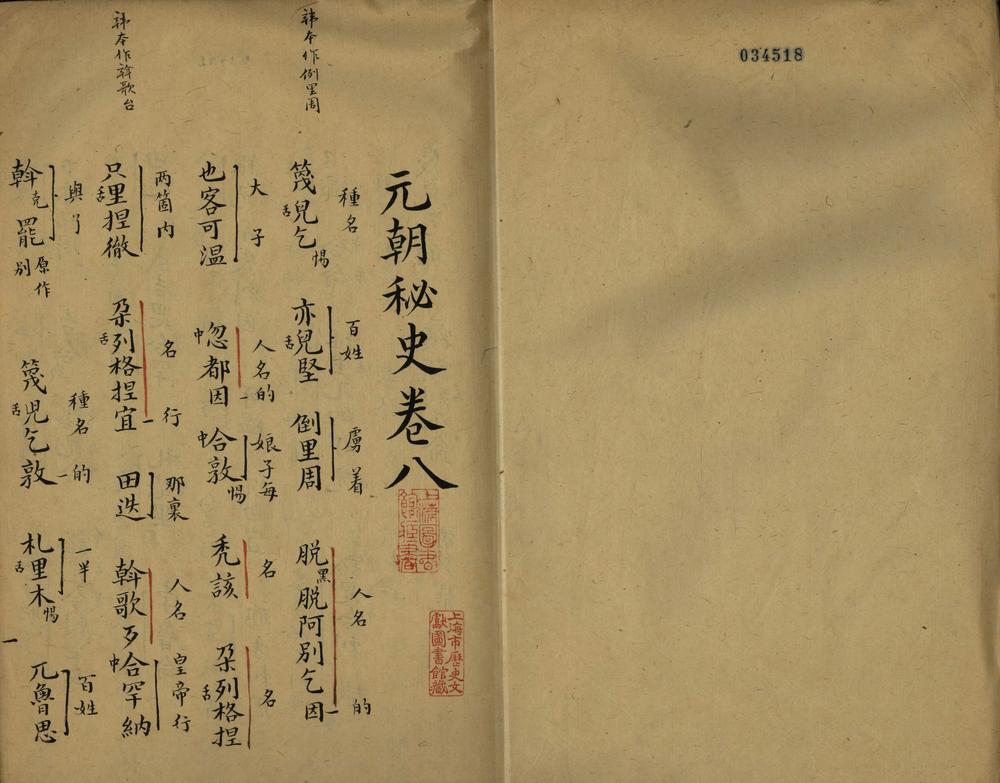 034518
元朝秘史卷八
上海圖書館藏書
上海市歷史文獻圖書館藏
韩本作倒里周
種名 百姓 虜着 人名 的
篾舌兒乞惕 亦舌兒堅 倒里周 脱黑脱阿别乞因
大 子 人名的 娘子每 名 名
也客可温 中忽都因 中合敦惕 禿該 朶舌列格捏
韩本作斡歌台
两箇内 名 行 那裏 人名 皇帝行
只舌里捏徹 朶舌列格捏宜 田迭 斡歌歹中合罕納
與了 種名的 一半 百姓
斡克罷 原作别 篾舌兒乞敦 札舌里木惕 兀魯思
一